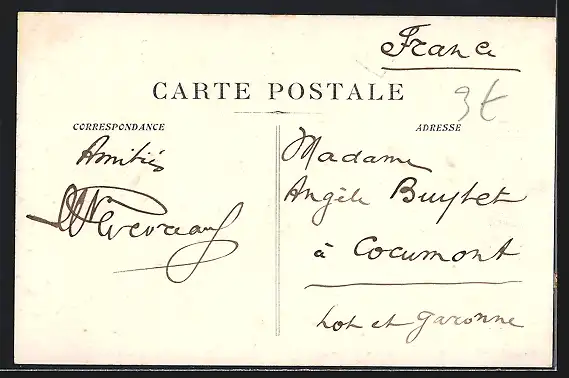 France
CARTE POSTALE
3t
CORRESPONDANCE
ADRESSE
Amitiés
Madame
Angèle Buytet
à Cocumont
Lot et Garonne